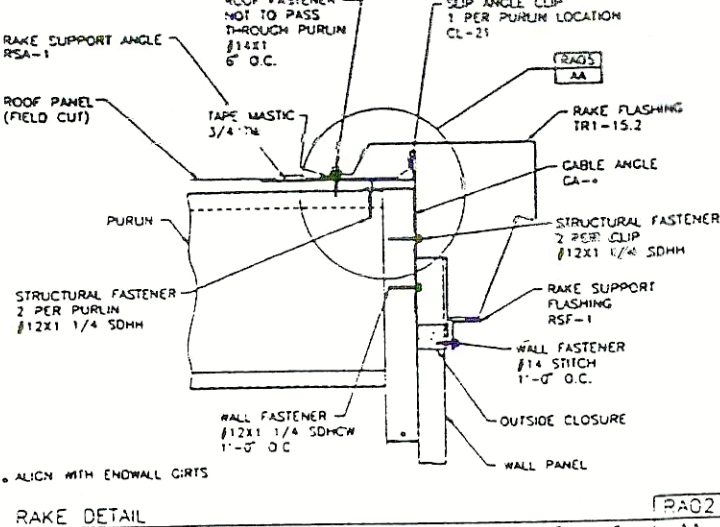 ROOF FASTENER
NOT TO PASS
THROUGH PURLIN
#14X1
6" O.C.
SLIP ANGLE CLIP
1 PER PURLIN LOCATION
CL-21
RAKE SUPPORT ANGLE
RSA-1
RA05
AA
ROOF PANEL
(FIELD CUT)
TAPE MASTIC
3/4
RAKE FLASHING
TR1-15.2
GABLE ANGLE
GA-
PURLIN
STRUCTURAL FASTENER
2 PER CLIP
#12X1 1/4 SDHH
STRUCTURAL FASTENER
2 PER PURLIN
#12X1 1/4 SDHH
RAKE SUPPORT
FLASHING
RSF-1
WALL FASTENER
#14 STITCH
1'-0" O.C.
WALL FASTENER
#12X1 1/4 SDHCW
1'-0" O.C
OUTSIDE CLOSURE
WALL PANEL
• ALIGN WITH ENDWALL GIRTS
RAKE DETAIL
RA02
AA